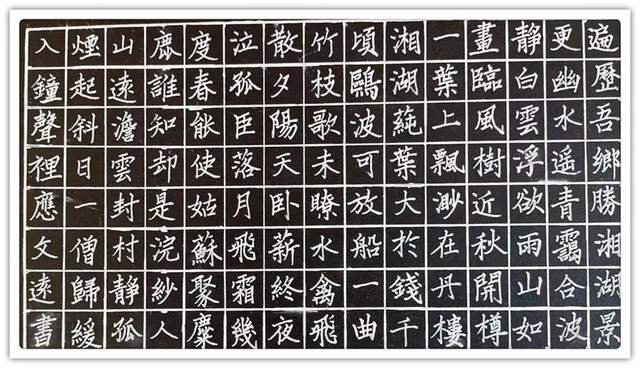 遍歷吾鄉勝湘湖景
更幽水遥青靄合波
靜白雲浮欲雨山如
畫臨風樹近秋開樽
一葉上飄渺在丹樓
湘湖蒓葉大於錢千
頃鷗波可放船一曲
竹枝歌未瞭水禽飛
散夕陽天卧薪終夜
泣孤臣落月飛霜幾
度春能使姑蘇聚麋
鹿誰知却是浣紗人
山遠澹雲封村靜孤
煙起斜日一僧歸緩
入鐘聲裡應文遠書